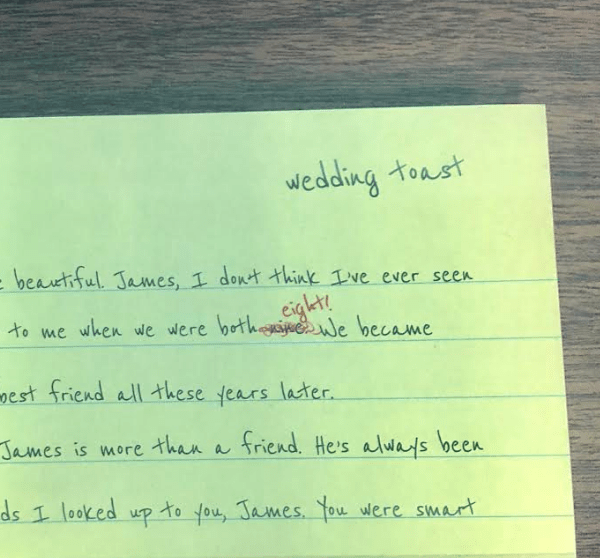 wedding toast
beautiful. James, I don't think I've ever seen
eight!
to me when we were both nine. We became
best friend all these years later.
James is more than a friend. He's always been
ds I looked up to you, James. You were smart